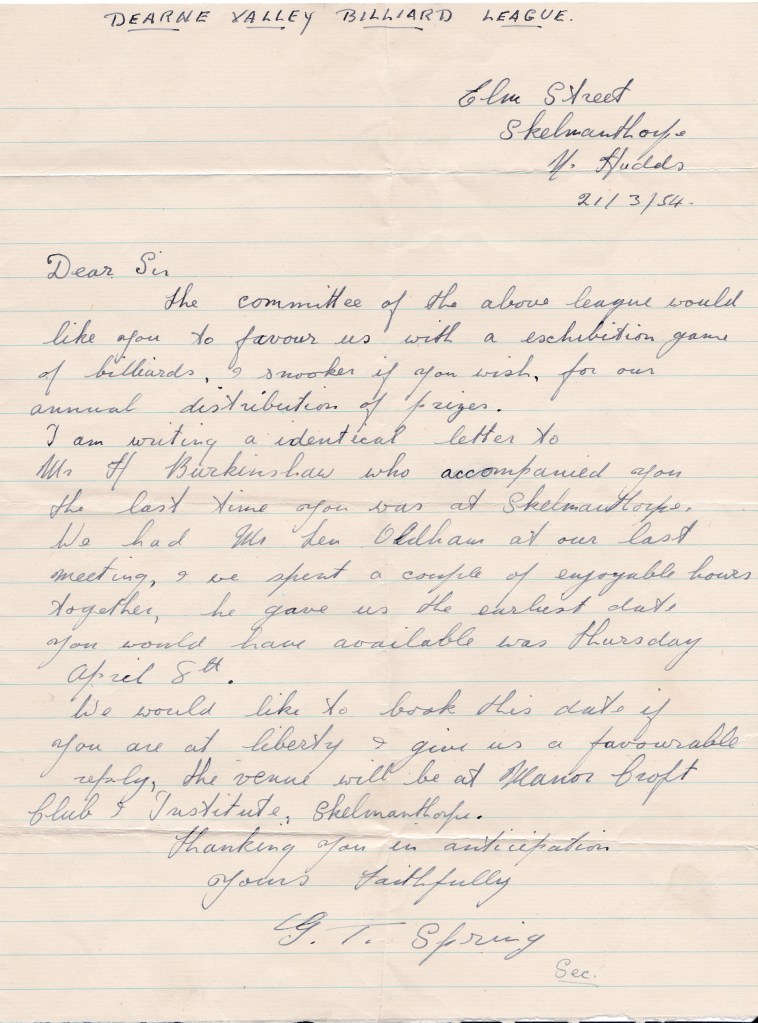 DEARNE VALLEY BILLIARD LEAGUE.
Elm Street
Skelmanthorpe
Nr. Hudds
21/3/54.
Dear Sir
The committee of the above league would
like you to favour us with a exchibition game
of billiards, & snooker if you wish, for our
annual distribution of prizes.
I am writing a identical letter to
Mr H Burkinshaw who accompanied you
the last time you was at Skelmanthorpe.
We had Mr Len Oldham at our last
meeting, & we spent a couple of enjoyable hours
together, he gave us the earliest date
you would have available was Thursday
April 8th.
We would like to book this date if
you are at liberty & give us a favourable
reply, the venue will be at Manor Croft
Club & Institute, Skelmanthorpe.
Thanking you in anticipation
Yours Faithfully
G. T. Spring
Sec.